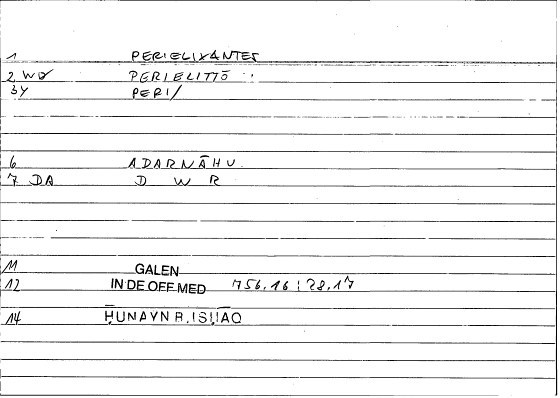 1 PERIELIXANTES
2 WO PERIELITTŌ
3Y PERI/
6 ADARNĀHU
7 DA D W R
11 GALEN
12 IN DE OFF.MED 756,16 ; 28,17
14 ḤUNAYN B. ISḤĀQ